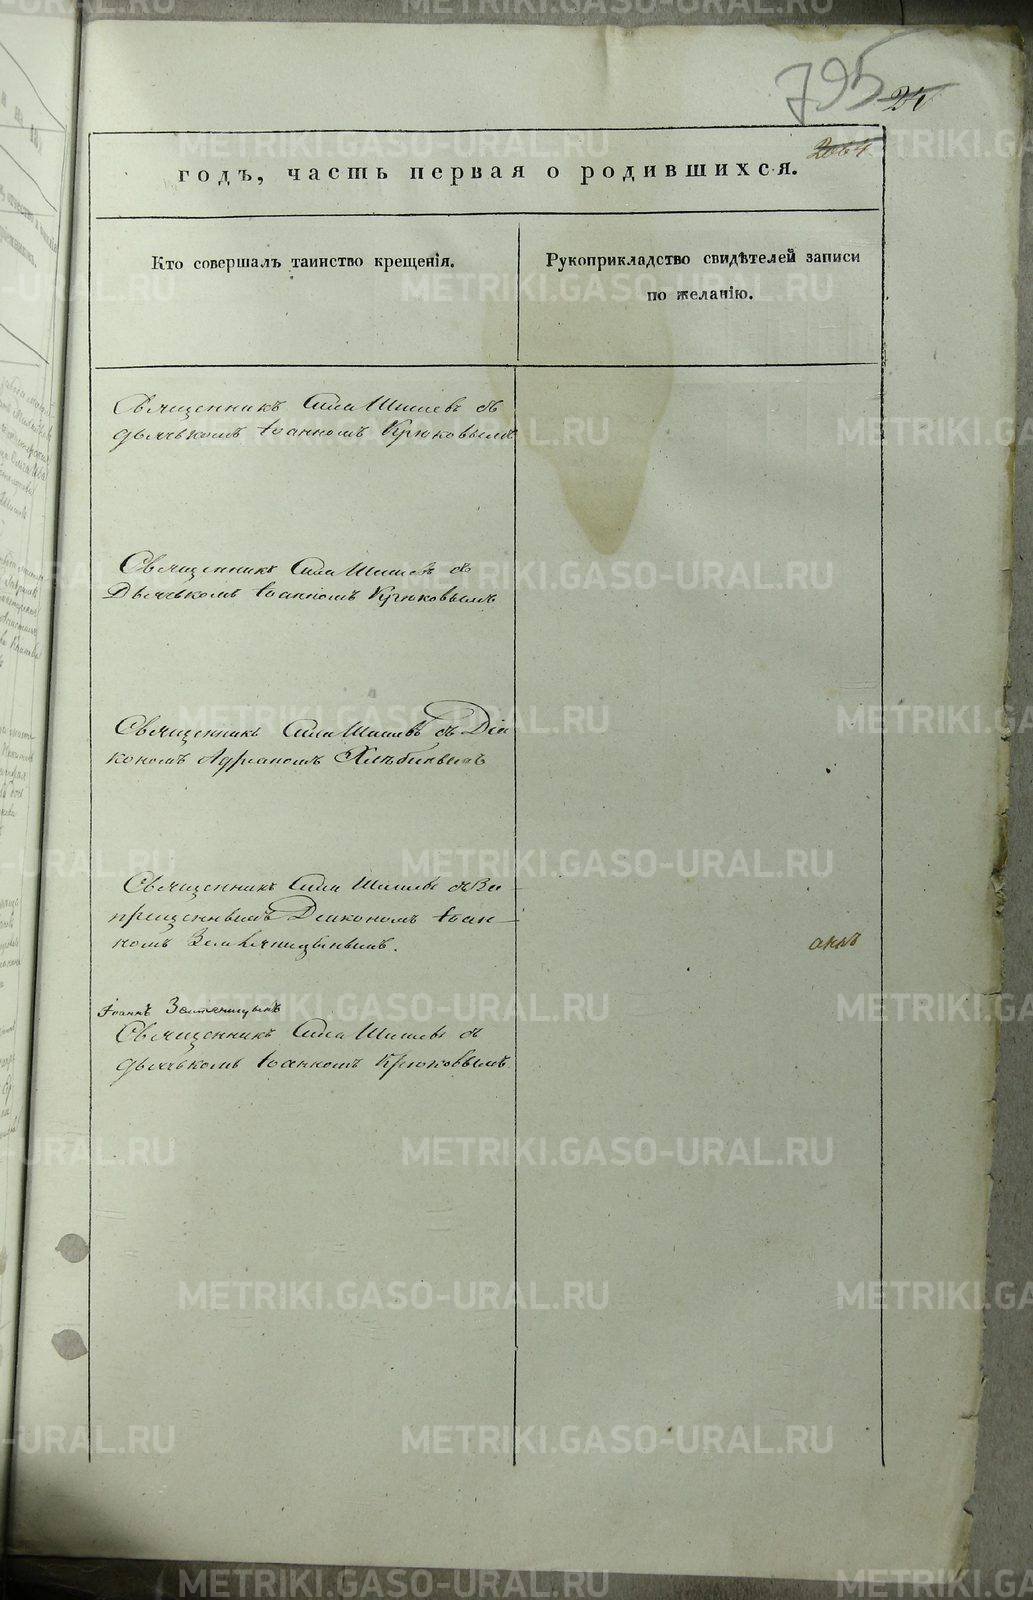 795
годъ, часть первая о родившихся.
Кто совершалъ таинство крещенія.
Рукоприкладство свидѣтелей записи
по желанію.
Священникъ Сила Шишевъ съ
дьячькомъ Іоанномъ Крюковымъ
Священникъ Сила Шишевъ съ
Дьячькомъ Іоанномъ Крюковымъ
Священникъ Сила Шишевъ съ Діа
кономъ Адрианомъ
Священникъ Сила Шишевъ съ За
прещеннымъ Диакономъ Іоан
номъ
Іоаннъ
Священникъ Сила Шишевъ съ
дьячькомъ Іоанномъ Крюковымъ.
METRIKI.GASO-URAL.RU